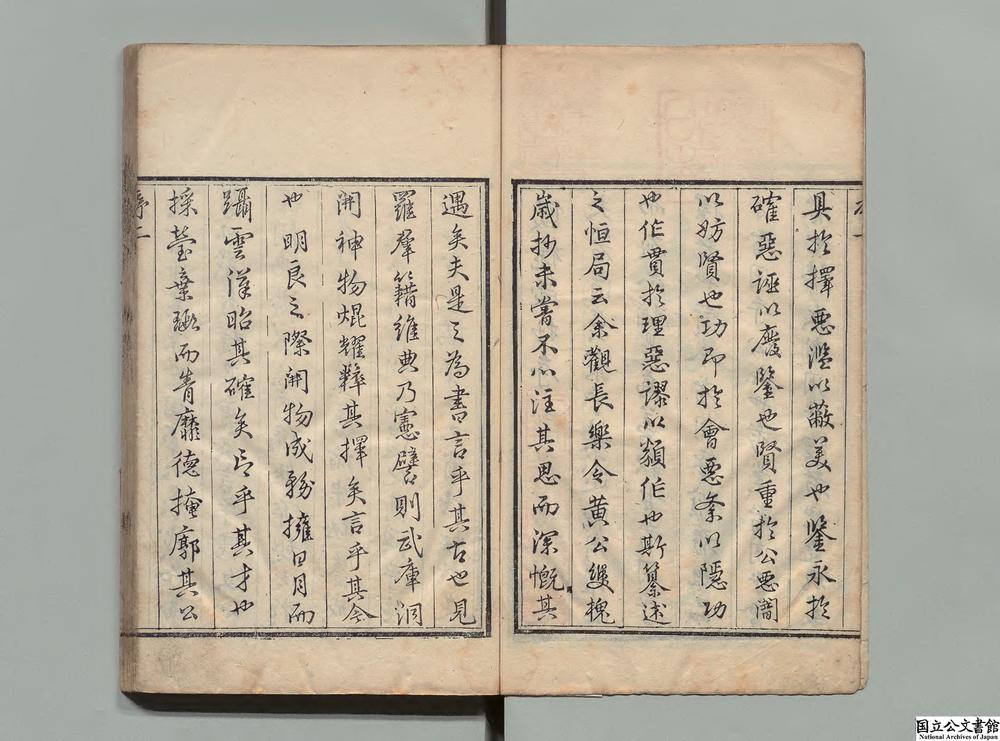 具於擇惡濫以蔽美也鑒永於
確惡誣以廢鑒也賢重於公惡闇
以妨賢也功即於會惡夆以隱功
也作貫於理惡謬以纇作也斯纂述
之恒局云余觀長樂令黄公雙槐
歲抄未嘗不心注其思而深慨其
遇矣夫是之為書言乎其古也見
羅羣籍維典乃憲譬則武庫洞
開神物焜耀粹其擇矣言乎其今
也明良之際開物成務擁日月而
躡雲漢昭其確矣言乎其才也
採瑩棄
而
靡德掩廓其公
序二
国立公文書館
National Archives of Japan